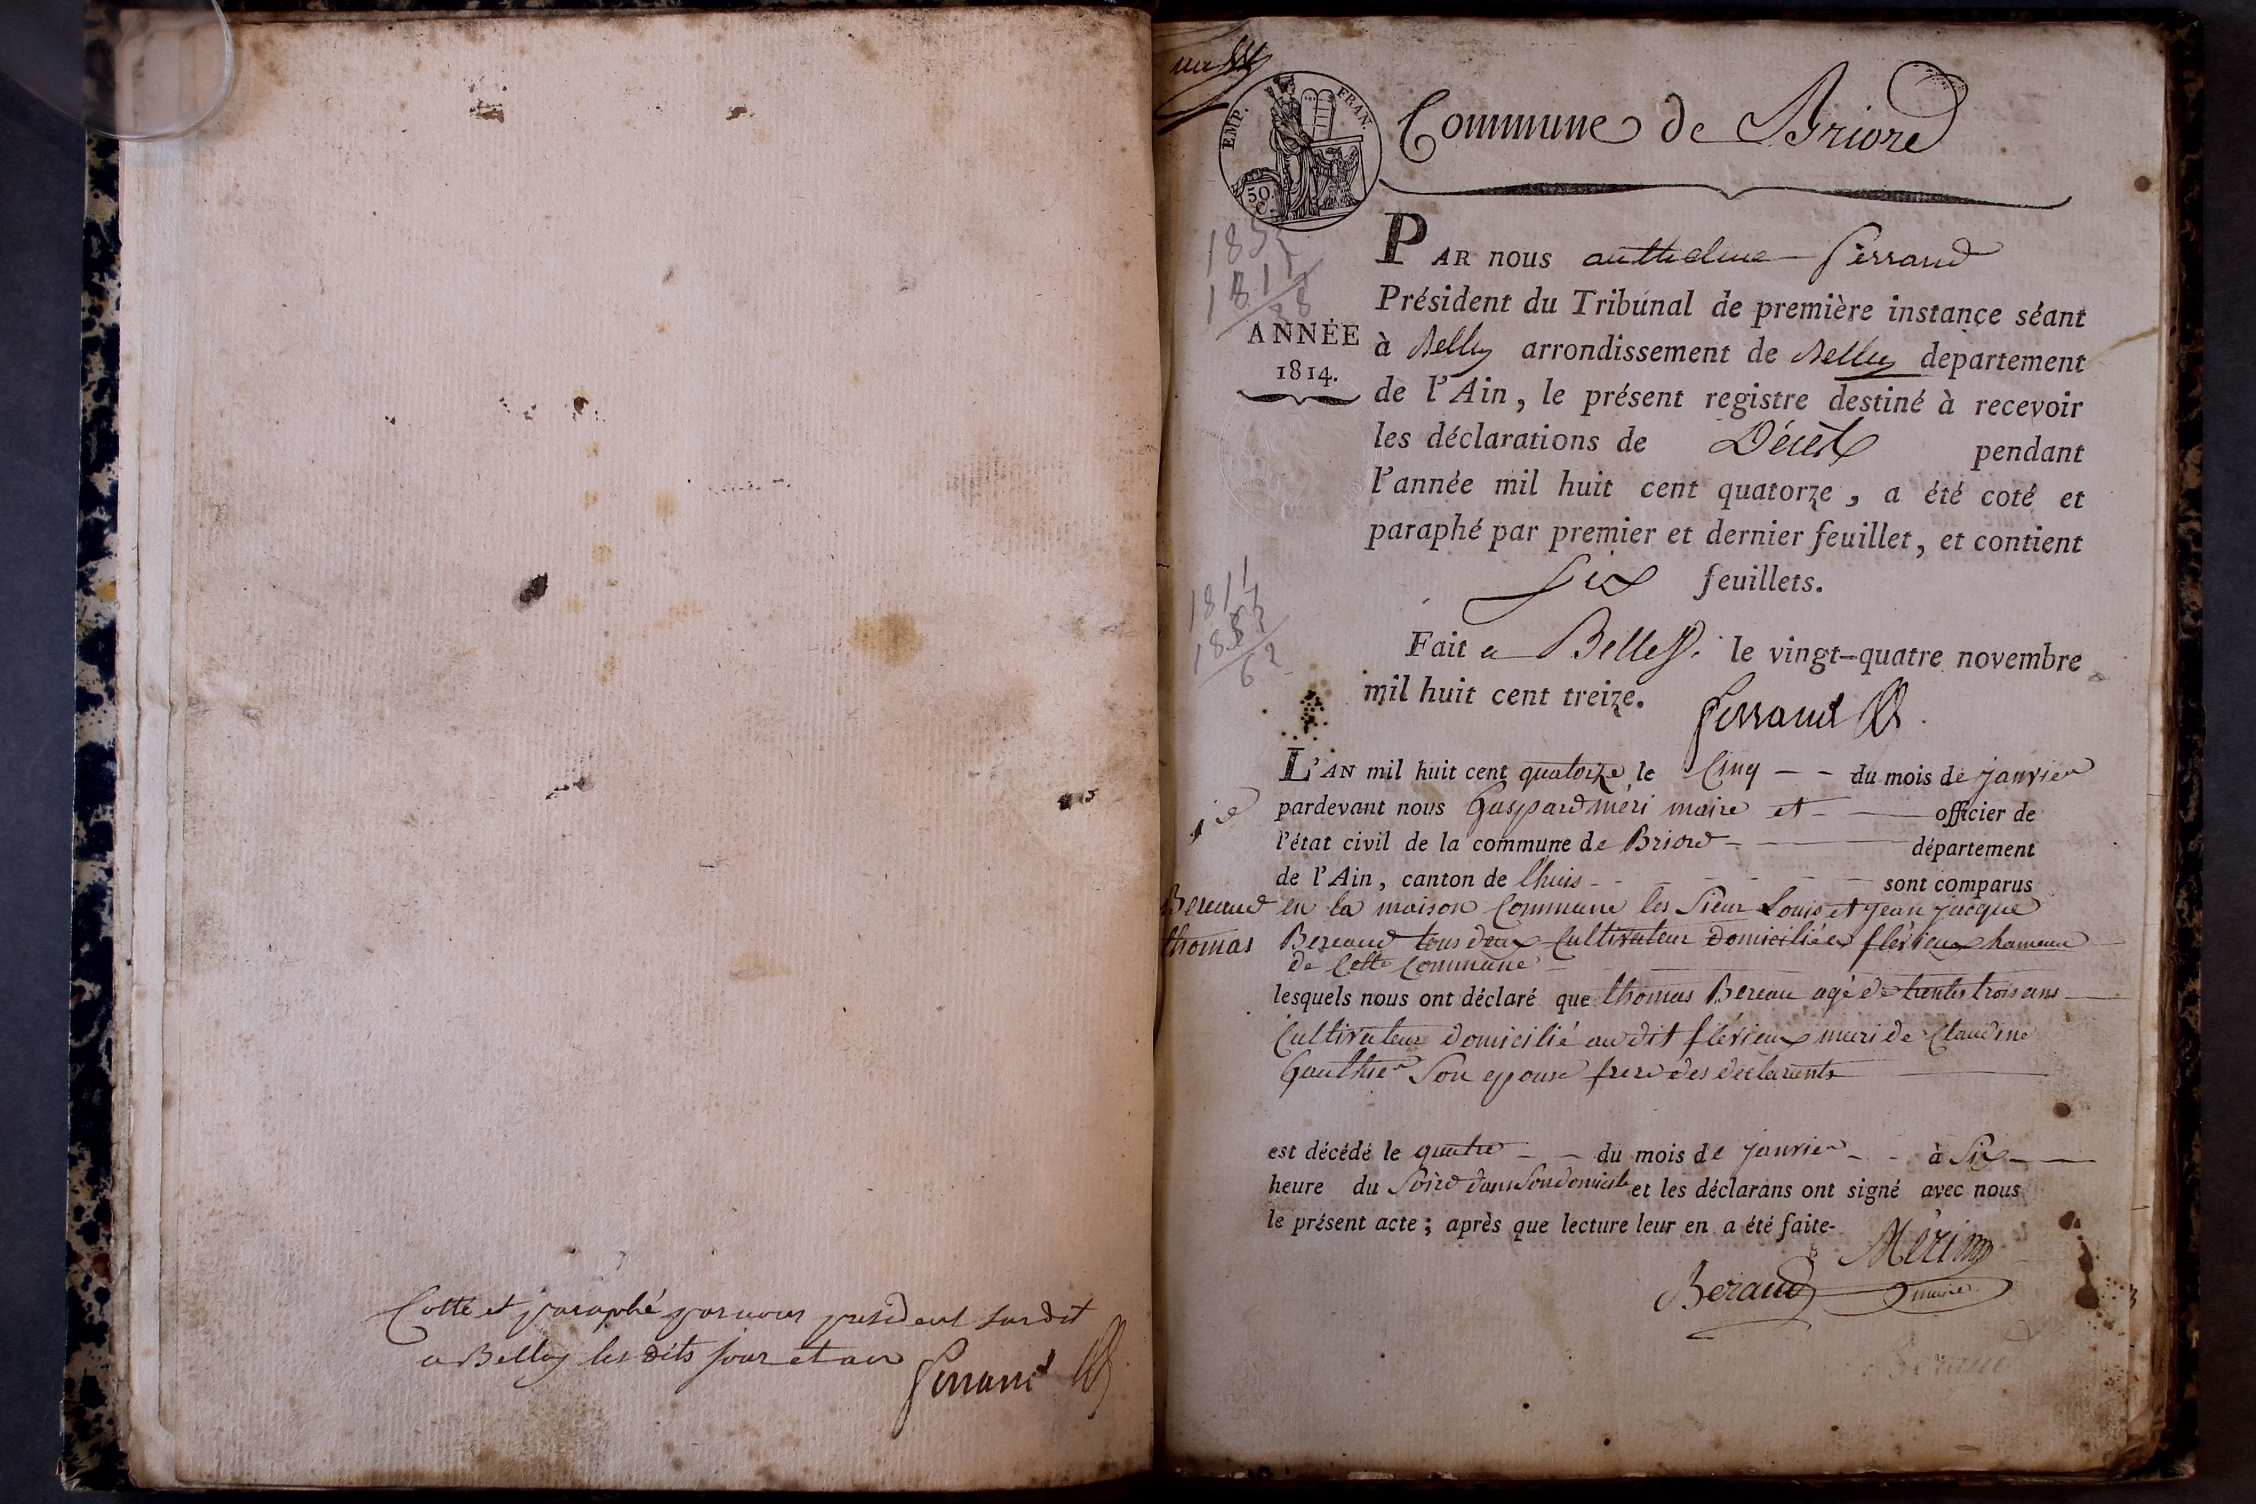 Cotté et paraphé par nous président susdit
a Belley les dits jour et an
Ferrand
EMP. FRAN.
50. C.
Commune de Briord
PAR nous anthelme Ferrand
Président du Tribunal de première instance séant
à Belley arrondissement de Belley département
de l'Ain, le présent registre destiné à recevoir
les déclarations de Décès pendant
l'année mil huit cent quatorze, a été coté et
paraphé par premier et dernier feuillet, et contient
Six feuillets.
Fait a Belley le vingt-quatre novembre
mil huit cent treize.
Ferrand
ANNÉE
1814.
L'AN mil huit cent quatorze le Cinq - - du mois de janvier
pardevant nous Gaspard méri maire et - officier de
l'état civil de la commune de Briord - département
de l'Ain, canton de lhuis - - - - - sont comparus
Bereaud
thomas
en la maison Commune les Sieur Louis et jean jacque
Bereaud tous deux Cultivateur domiciliée a flérieux hameau
de Cette Commune
lesquels nous ont déclaré que thomas Bereau agé de trentes trois ans
Cultivateur domicilié au dit flérieux mari de Claudine
Gauthier Son epouse frere des déclarents
est décédé le quatre - - du mois de janvier - - à Six
heure du Soire dans Son domicile et les déclarans ont signé avec nous
le présent acte; après que lecture leur en a été faite-
Méri
maire
Beraud
Beraud